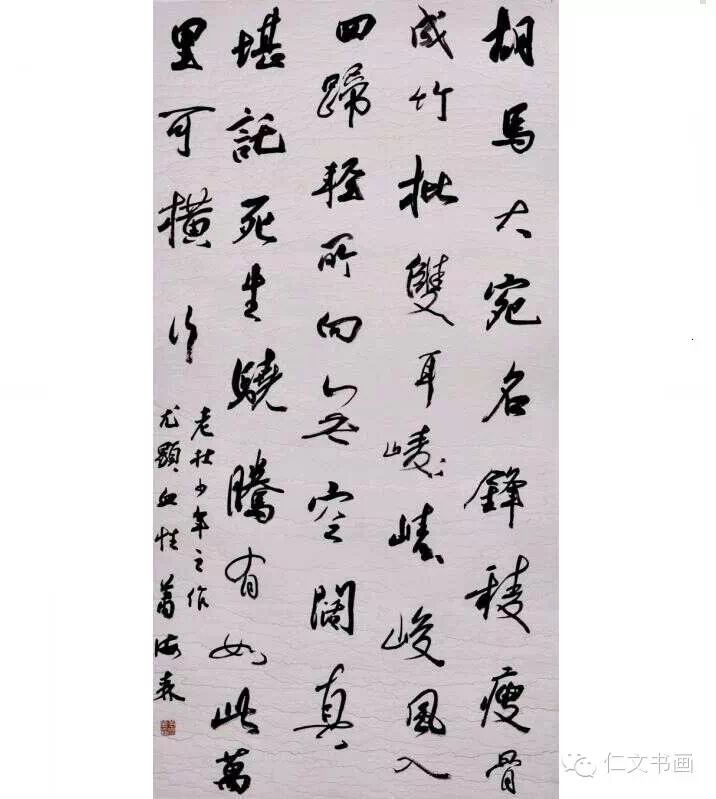 胡馬大宛名鋒稜瘦骨
成竹批雙耳崚嶒峻風入
四蹄輕所向無空闊真
堪託死生驍騰有如此萬
里可橫行
老杜少年之作
尤顯血性 海
仁文书画